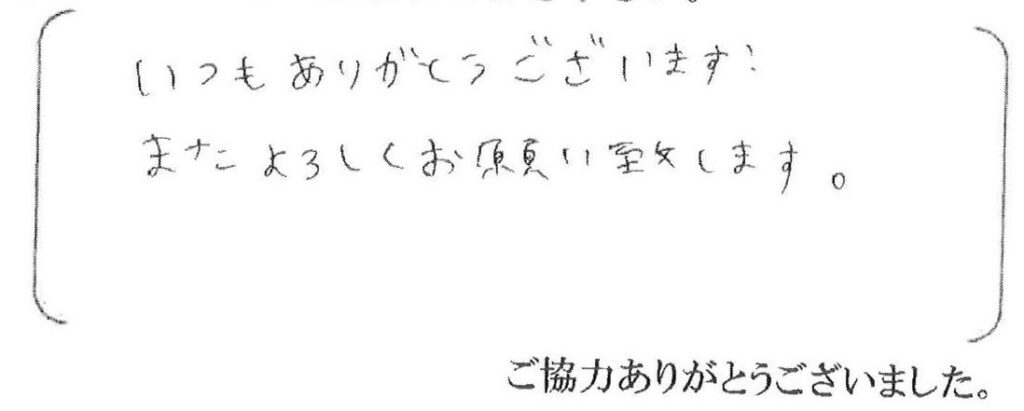 いつもありがとうございます!
またよろしくお願い致します。
ご協力ありがとうございました。